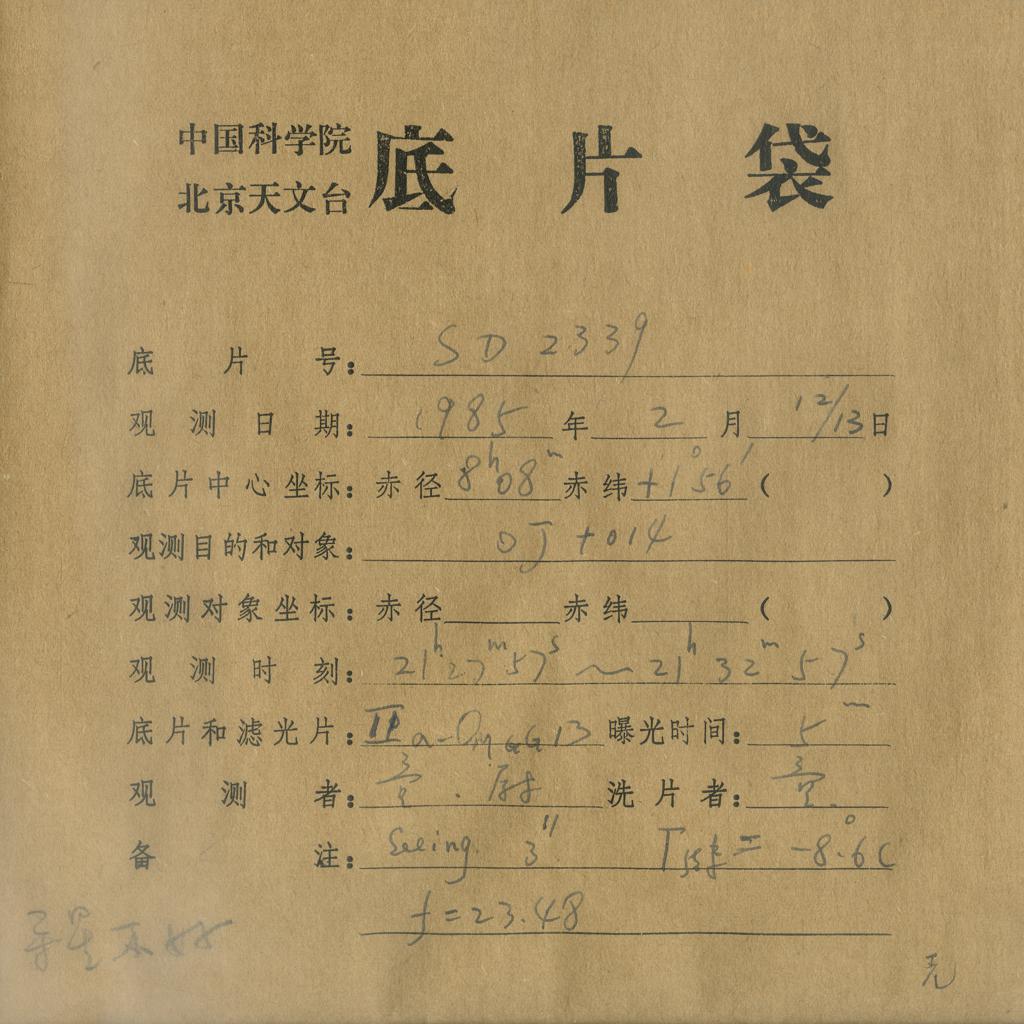 中国科学院
北京天文台
底片袋
底片号：SD 2339
观测日期：1985年2月12/13日
底片中心坐标：赤径8h08m赤纬+1°56′（ ）
观测目的和对象：OJ+014
观测对象坐标：赤径 赤纬 （ ）
观测时刻：21h27m57s～21h32m57s
底片和滤光片：IIa-O GG13 曝光时间：5m
观测者： 洗片者：
备注：Seeing 3″ T = -8.6°C
f=23.48
导星不好